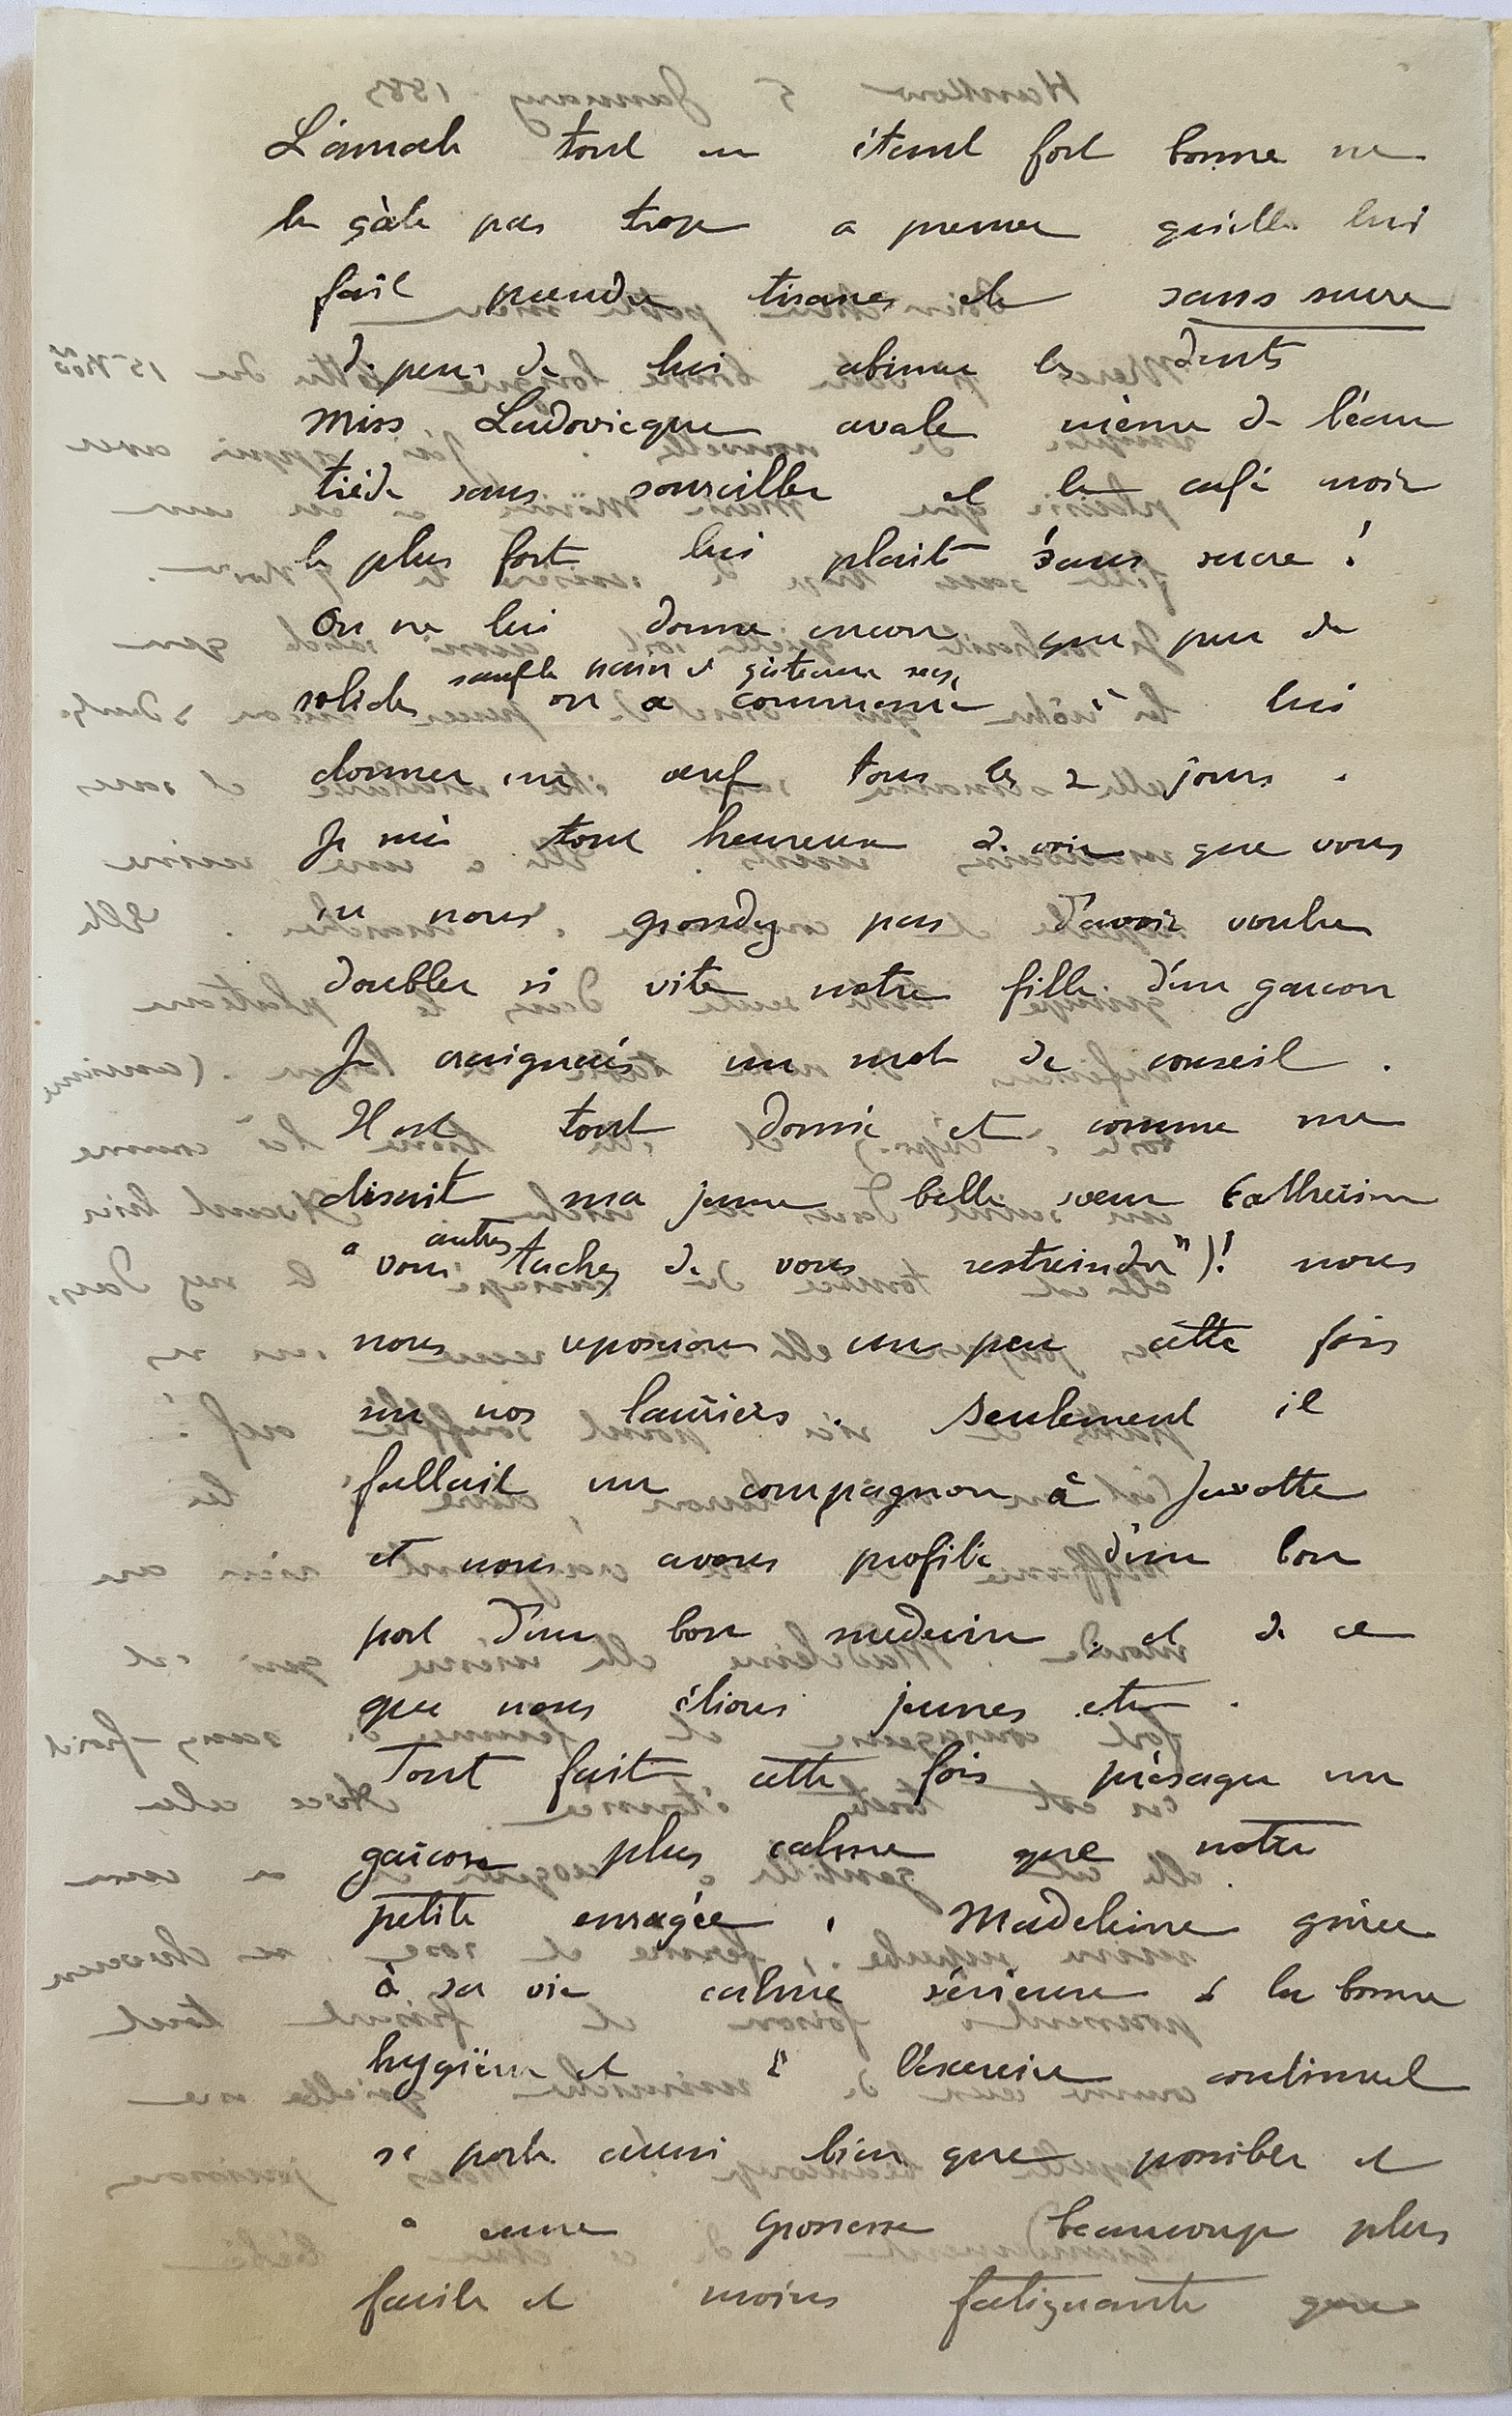 L'amah tout en étant fort bonne ne
la gâte pas trop a preuve qu'elle lui
fait prendre tisanes etc sans sucre
de peur de lui abimer les dents
Miss Ludovicque avale même de l'eau
tiède sans sourciller et le café noir
le plus fort lui plait sans sucre !
On ne lui donne encore que peu de
sauf le pain et gâteaux secs
solides on a commencé à lui
donner un œuf tous les 2 jours .
Je suis tout heureux de voir que vous
ne nous grondez pas d'avoir voulu
doubler si vite notre fille d'un garcon
Je craignais un mot de conseil .
Il est tout donné et comme me
disait ma jeune belle sœur Catherine
autres
"vous tachez de vous restreindre") ! nous
nous reposerons un peu cette fois
sur nos lauriers . Seulement il
fallait un compagnon à Javotte
et nous avons profité d'un bon
port d'un bon medecin et de ce
que nous étions jeunes etc .
Tout fait cette fois présager un
garcon plus calme que notre
petite enragée . Madeleine grâce
à sa vie calme sérieuse & la bonne
hygiène et à l'exercice continuel
se porte aussi bien que possible et
a une grossesse beaucoup plus
facile et moins fatiguante que